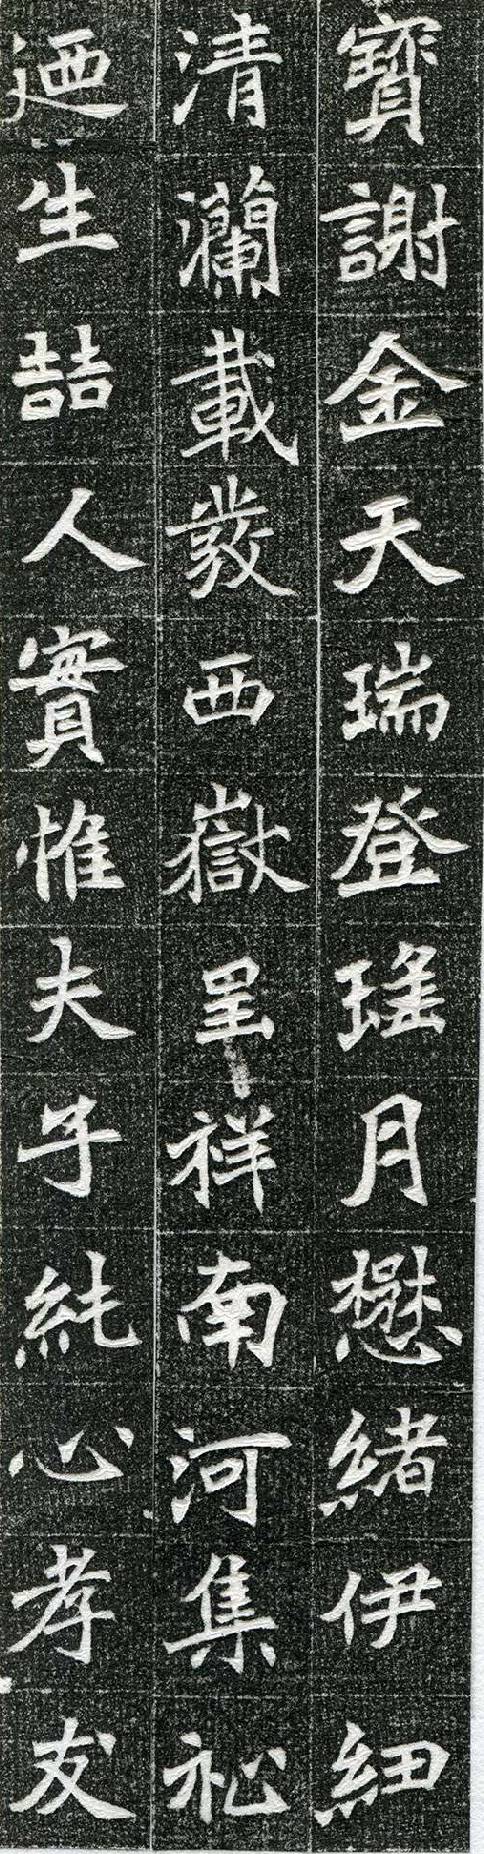 寶謝金天瑞登瑤月懋緒伊紐
清瀾載發西嶽呈祥南河集祉
迺生喆人實惟夫子純心孝友